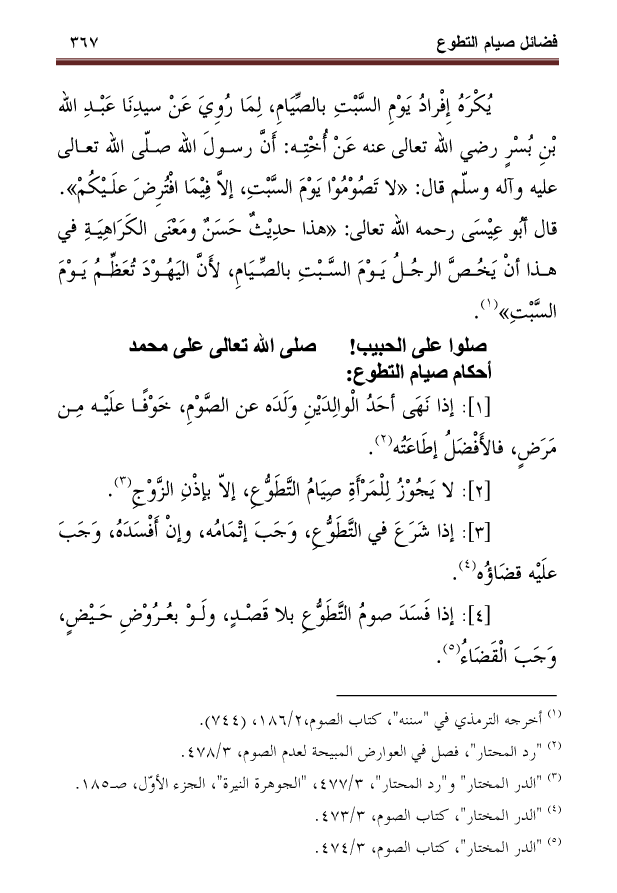 فضائل صيام التطوع ٣٦٧
يُكْرَهُ إِفْرادُ يَوْمِ السَّبْتِ بالصِّيَامِ، لِمَا رُوِيَ عَنْ سيدِنَا عَبْـدِ الله
بْنِ بُسْرٍ رضي الله تعالى عنه عَنْ أُخْتِـه: أَنَّ رسـولَ الله صلّـى الله تعـالى
عليه وآله وسلّم قال: «لا تَصُوْمُوْا يَوْمَ السَّبْتِ، إلاَّ فِيْمَا افْتُرِضَ علَـيْكُمْ».
قال أَبُو عِيْسَى رحمه الله تعالى: «هذا حدِيْثٌ حَسَنٌ ومَعْنَى الكَرَاهِيَـةِ في
هـذا أنْ يَخُـصَّ الرجُـلُ يَـوْمَ السَّـبْتِ بالصِّـيَامِ، لأَنَّ اليَهُـوْدَ تُعَظِّـمُ يَـوْمَ
السَّبْتِ»(١).
صلوا على الحبيب! صلى الله تعالى على محمد
أحكام صيام التطوع:
[١]: إذا نَهَى أحَدُ الْوالِدَيْنِ وَلَدَه عن الصَّوْمِ، خَوْفًـا علَيْـه مِـن
مَرَضٍ، فالأَفْضَلُ إطَاعَتُه(٢).
[٢]: لا يَجُوْزُ لِلْمَرْأَةِ صِيَامُ التَّطَوُّعِ، إلاّ بإذْنِ الزَّوْجِ(٣).
[٣]: إذا شَرَعَ في التَّطَوُّعِ، وَجَبَ إتْمَامُه، وإنْ أَفْسَدَهُ، وَجَبَ
علَيْه قضَاؤُه(٤).
[٤]: إذا فَسَدَ صومُ التَّطَوُّعِ بلا قَصْـدٍ، ولَـوْ بعُـرُوْضِ حَـيْضٍ،
وَجَبَ الْقَضَاءُ(٥).
(١) أخرجه الترمذي في "سننه"، كتاب الصوم،١٨٦/٢، (٧٤٤).
(٢) "رد المحتار"، فصل في العوارض المبيحة لعدم الصوم، ٤٧٨/٣.
(٣) "الدر المختار" و"رد المحتار"، ٤٧٧/٣، "الجوهرة النيرة"، الجزء الأوّل، صـ١٨٥.
(٤) "الدر المختار"، كتاب الصوم، ٤٧٣/٣.
(٥) "الدر المختار"، كتاب الصوم، ٤٧٤/٣.